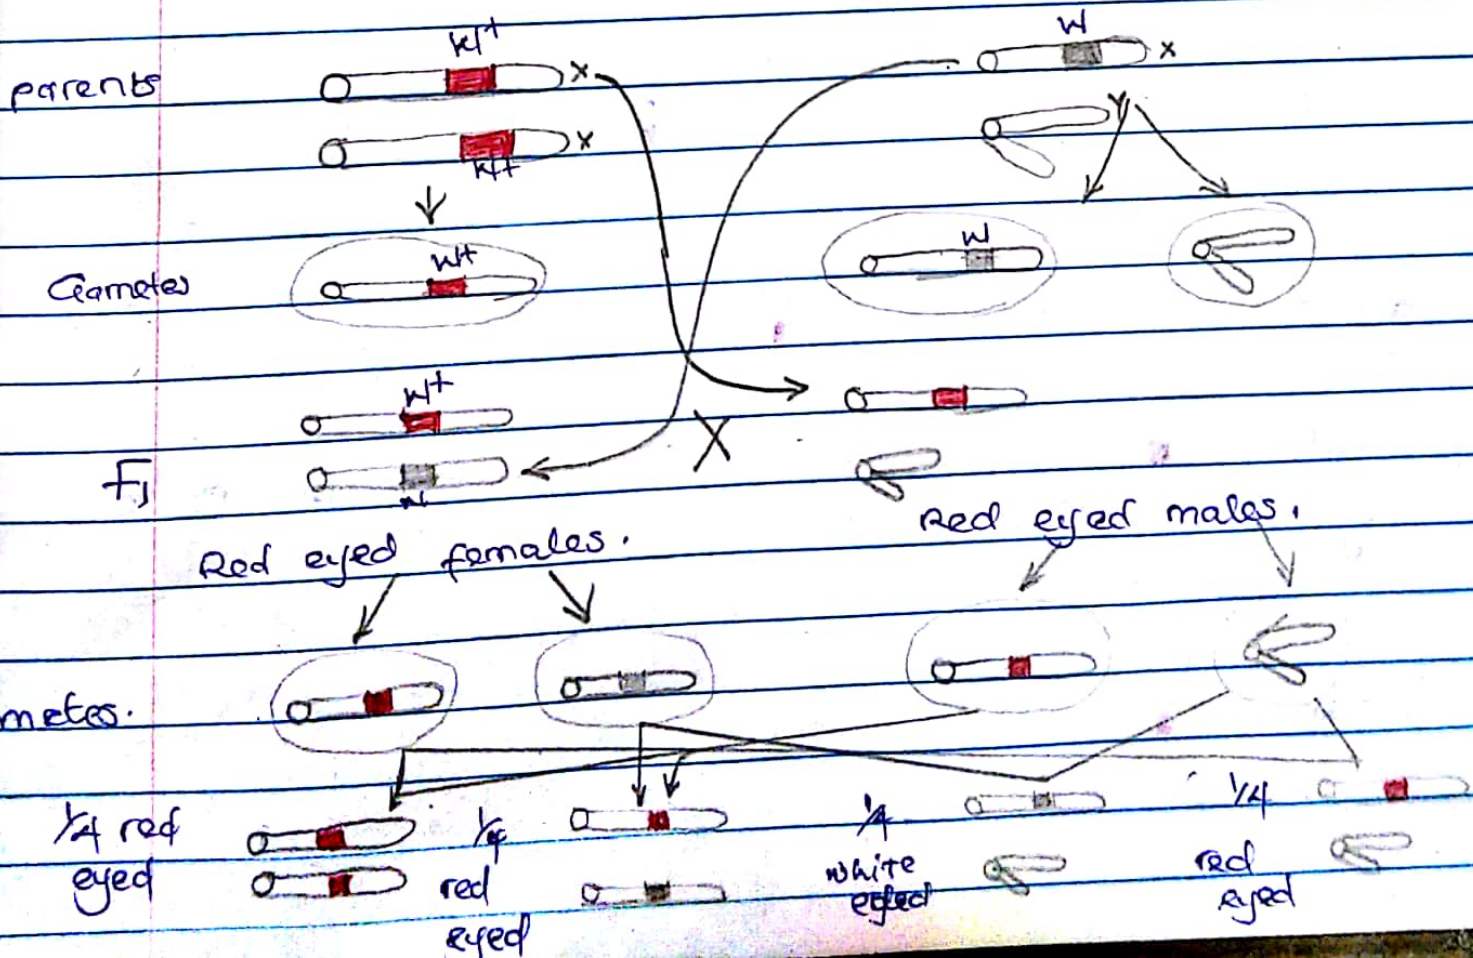 W+
W
parents
x
x
x
W+
y
W+
W
Gametes
W+
X
F1
w
Red eyed females.
Red eyed males.
metes.
1/4 red
eyed
1/4
red
eyed
1/4
white
eyed
1/4
red
eyed